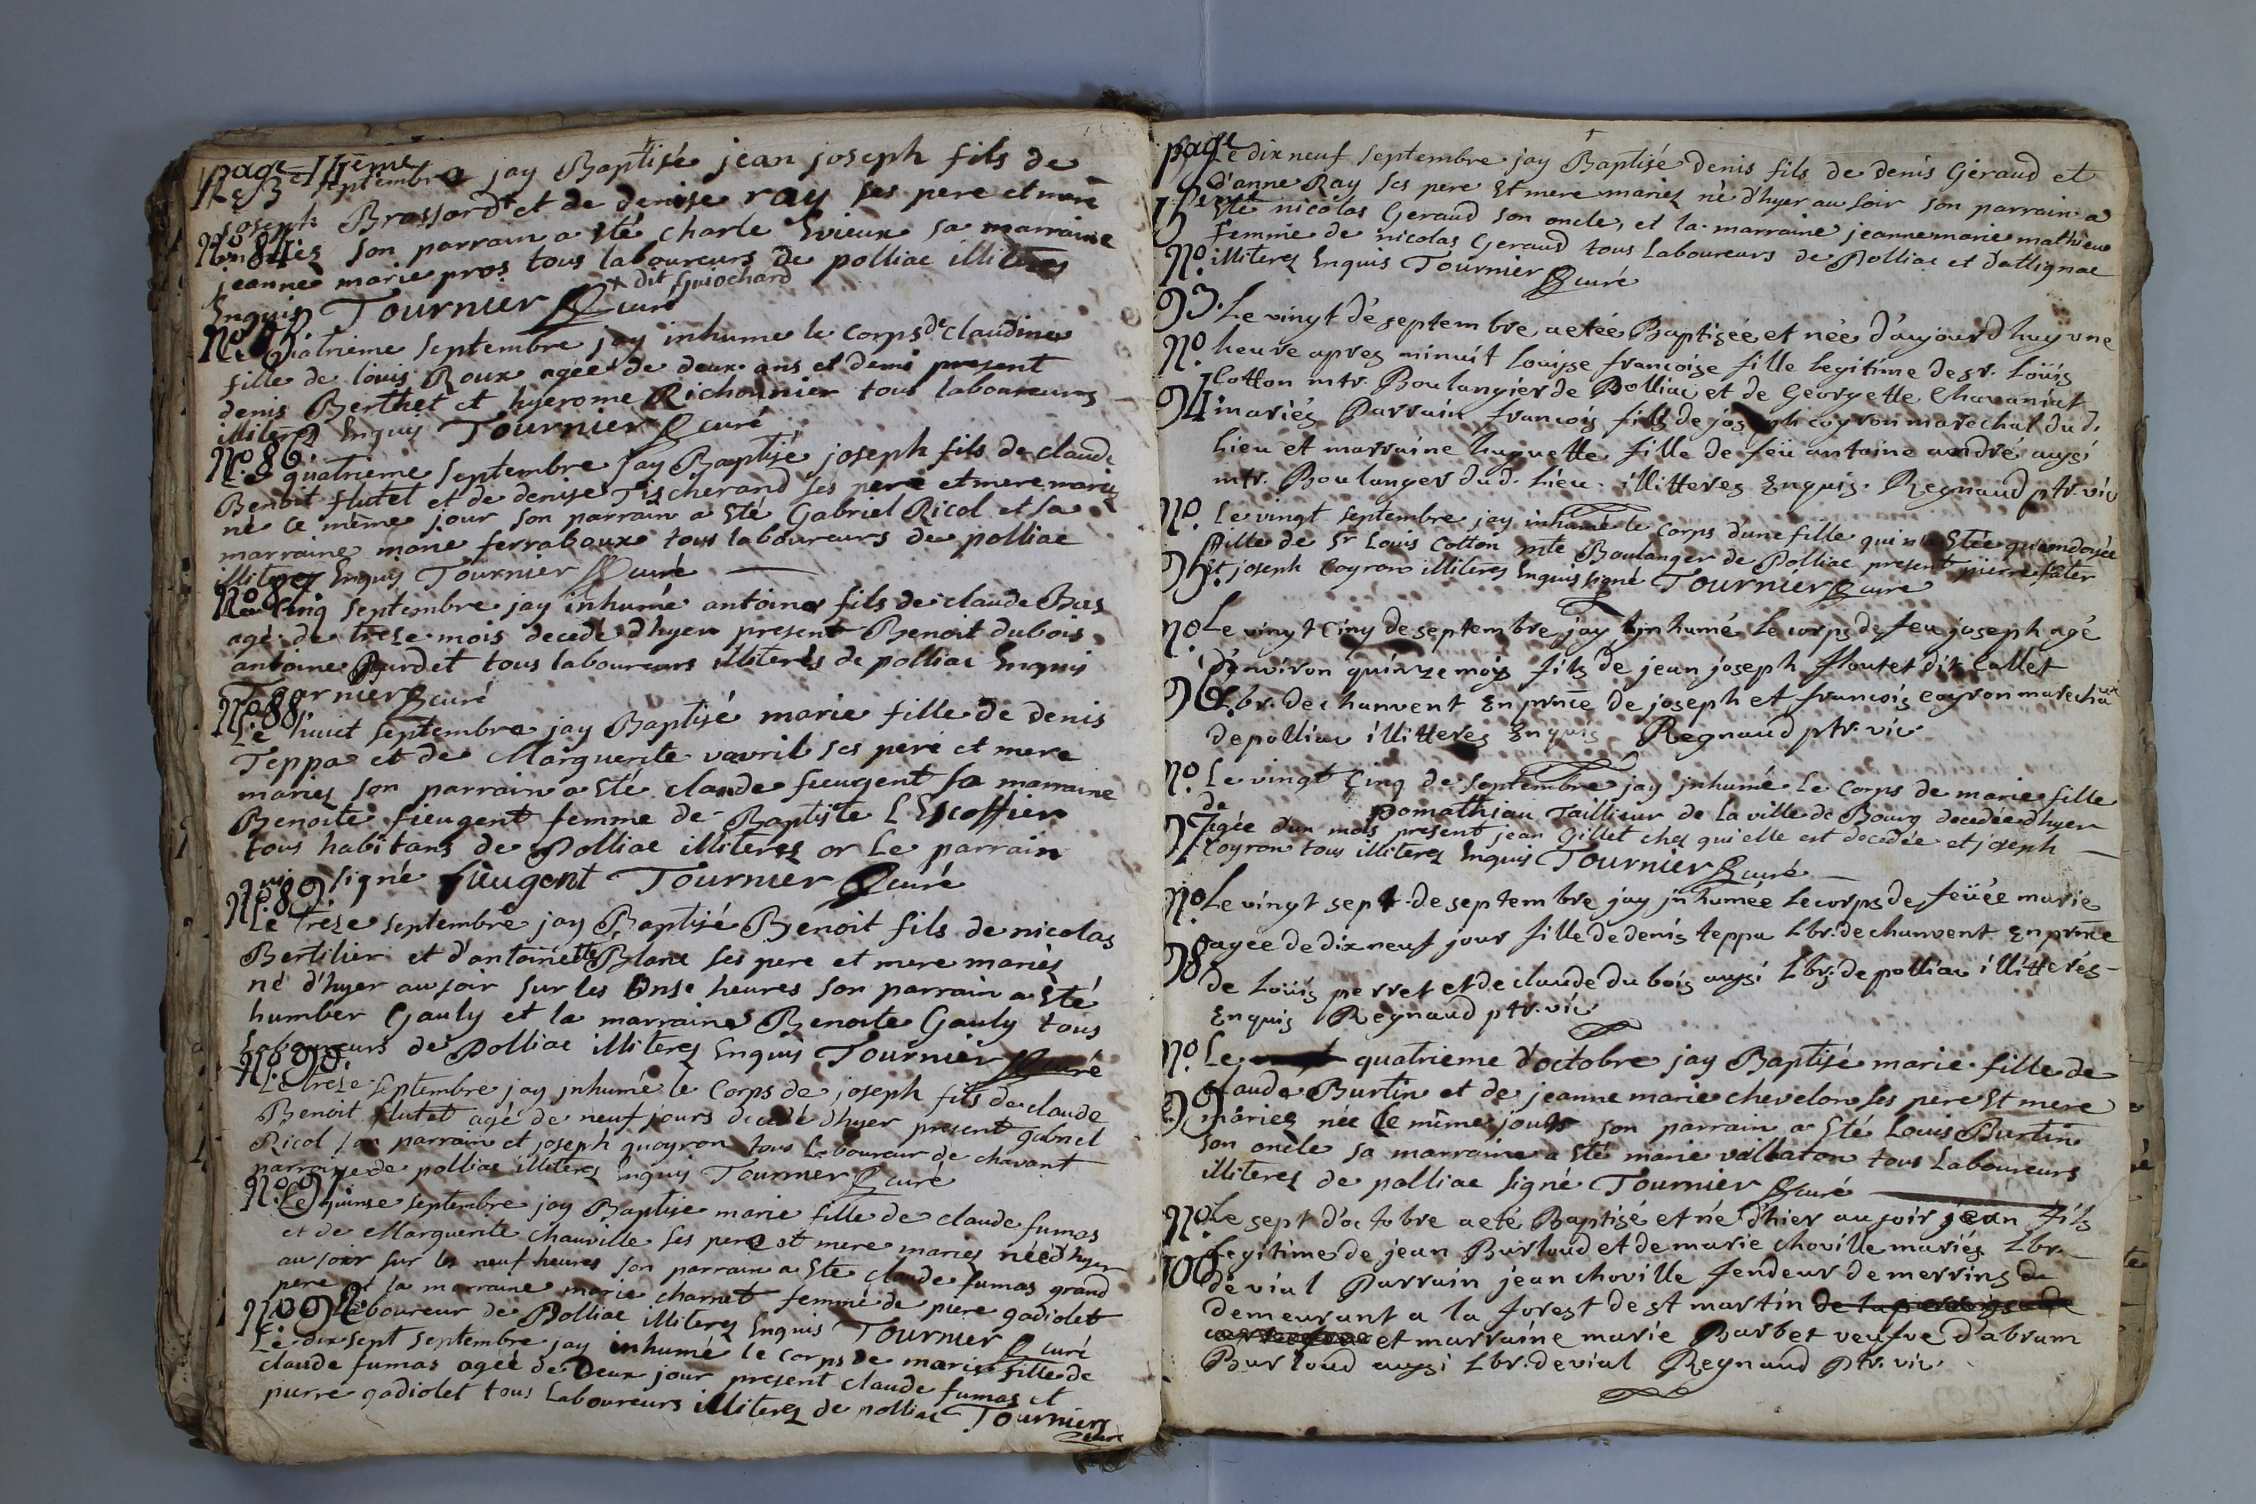 page 14ème
Le 3e septembre jay Baptisé jean joseph fils de
joseph Brassard + et de denise ray ses pere et mere
N.° 84.
mariés son parrain a Eté charle Evieux sa marraine
jeanne marie pros tous laboureurs de polliac illiteres
Enquis Tournier curé + dit Guiochard
N.° 85.
Le quatrieme septembre jay inhumé le corps de claudine
fille de louis Roux agée de deux ans et demi present
denis Berthet et hyerome Richonnier tous laboureurs
illiterez Enquis Tournier curé
N.° 86.
Le quatrieme septembre jay Baptisé joseph fils de claude
Benoit flutet et de denise Tischerand ses pere et mere mariez
né ce même jour son parrain a Eté Gabriel Ricol et sa
marraine marie ferraboux tous laboureurs de polliac
illiterez Enquis Tournier curé
N.° 87.
Le Cinq septembre jay inhumé antoine fils de claude Bas
agé de treze mois decedé d'hyer present Benoit dubois
antoine Burdet tous laboureurs illiterés de polliac Enquis
Tournier curé
N.° 88.
Le huict septembre jay Baptisé marie fille de denis
Teppa et de Marguerite vavril ses peré et mere
mariez son parrain a Eté claude fieugent sa marraine
Benoite fieugent femme de Baptiste L'Escoffier
tous habitans de Polliac illiterez or le parrain
qui a signé fieugent Tournier curé
N.° 89.
Le treze septembre jay Baptisé Benoit fils de nicolas
Bertilier et d'antoinette Blanc ses pere et mere mariez
né d'hyer au soir sur les Onse heures son parrain a Eté
humber Gauly et la marraine Benoite Gauly tous
Laboureurs de Polliac illiterez Enquis Tournier curé
N.° 90.
Le treze septembre jay inhumé le Corps de joseph fils de claude
Benoit flutet agé de neuf jours decedé d'hyer present gabriel
Ricol son parrain et joseph quoyron tous Laboureur de chavant
parroisse de polliac illiterez Enquis Tournier curé
N.° 91.
Le quinse septembre jay Baptisé marie fille de claude fumas
et de Marguerite chauville ses pere et mere mariez née d'hyer
au soir sur les neuf heures son parrain a Eté claude fumas grand
pere et sa marraine marie charnet femme de piere gadiolet
N.° 92.
Laboureur de Polliac illiterez Enquis Tournier curé
Le dix sept septembre jay inhumé le corps de marie fille de
claude fumas agée de Deux jour present claude fumas et
pierre gadiolet tous Laboureurs illiterez de polliac Tournier
curé
page
15
Le dix neuf septembre jay Baptisé denis fils de denis Géraud et
d'anne Ray ses pere Et mere mariez né d'hyer au soir son parrain a
Eté nicolas Geraud son oncle, et la marraine jeanne marie mathieu
femme de nicolas Geraud tous Laboureurs de Polliac et d'attignac
N.° 93.
illiterez Enquis Tournier curé
Le vingt de septembre a etée Baptisée et née d'aujourd huy une
N.° 94
heure apres minuit Louise francoise fille legitime de sr. Loüis
Cotton mtr. Boulangier de Polliac et de Georgette Chavaniat
mariés Parrain francois fils de joseph coyron marechal du d.
Lieu et marraine huguette fille de feü antoine andré aussi
mtr. Boulanger du d. Lieu. illitteres Enquis. Regnaud ptr. vic
N.° 95.
Le vingt septembre jay inhumé le Corps d'une fille qui n'a Etée qu'ondoyée
fille de Sr Louis Cotton mtr Boulanger de Polliac present pierre
et joseph Coyron illiterez Enquis signé Tournier curé
N.° 96.
Le vingt Cinq de septembre jay inhumé Le corps de feu joseph agé
d'environ quinze mois fils de jean joseph floutet dit Callet
Lbr. de chanvent En prnce de joseph et francois coyron marechaux
de polliac illitteres Enquis Regnaud ptr. vic
N.° 97.
Le vingt Cinq de septembre jay inhumé Le Corps de marie fille
de pomathiau Taillieur de La ville de Bourg decedée d'hyer
agée d'un mois present jean gillet chez qui elle est decedée et joseph
Coyron tous illiterez Enquis Tournier curé
N.° 98
Le vingt sept de septembre jay inhumée Le corps de feüée marie
agée de dix neuf jour fille de denis teppa Lbr. de chanvent En prnce
de Loüis perret et de claude du bois aussi Lbr. de polliac illitterés
Enquis Regnaud ptr. vic
N.° 99
Le quatrieme d'octobre jay Baptisé marie fille de
claude Burtin et de jeanne marie chevelon ses pere Et mere
mariez née le même jour son parrain a Eté Louis Burtin
son oncle sa marraine a Eté marie vallaton tous Laboureurs
illiterez de polliac signé Tournier curé
N.° 100
Le sept d'octobre a eté Baptisé et né d'hier au soir jean fils
Legitime de jean Burloud et de marie choville mariés Lbr.
de vial Parrain jean choville fendeur de merrins
demeurant a la forest de st martin
et marraine marie Barbet veufve d'abram
Burloud aussi Lbr. de vial Regnaud Ptr. vic.